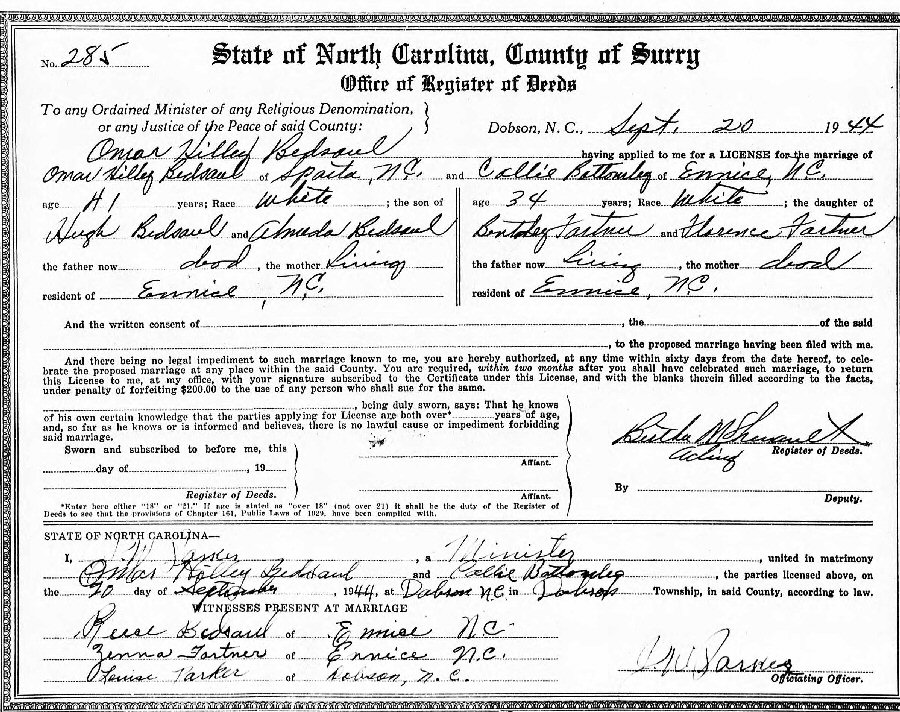 No. 285
State of North Carolina, County of Surry
Office of Register of Deeds
To any Ordained Minister of any Religious Denomination,
or any Justice of the Peace of said County:
Dobson, N. C., Sept. 20 1944
Omar Hilley Bedsaul having applied to me for a LICENSE for the marriage of
Omar Hilley Bedsaul of Sparta, N.C. and Callie Bottomley of Ennice, N.C.
age 41 years; Race White ; the son of
Hugh Bedsaul and Almeda Bedsaul
the father now dead , the mother Living
resident of Ennice , N.C.
age 34 years; Race White ; the daughter of
Fortner and Florence Fortner
the father now Living , the mother dead
resident of Ennice, N.C.
And the written consent of , the of the said
, to the proposed marriage having been filed with me.
And there being no legal impediment to such marriage known to me, you are hereby authorized, at any time within sixty days from the date hereof, to cele-
brate the proposed marriage at any place within the said County. You are required, within two months after you shall have celebrated such marriage, to return
this License to me, at my office, with your signature subscribed to the Certificate under this License, and with the blanks therein filled according to the facts,
under penalty of forfeiting $200.00 to the use of any person who shall sue for the same.
, being duly sworn, says: That he knows
of his own certain knowledge that the parties applying for License are both over* years of age,
and, so far as he knows or is informed and believes, there is no lawful cause or impediment forbidding
said marriage.
Sworn and subscribed to before me, this
day of , 19
Register of Deeds.
Affiant.
Affiant.
*Enter here either "18" or "21." If age is stated as "over 18" (not over 21) it shall be the duty of the Register of
Deeds to see that the provisions of Chapter 161, Public Laws of 1929, have been complied with.
Acting Register of Deeds.
By
Deputy.
STATE OF NORTH CAROLINA—
I, Parker , a Minister , united in matrimony
Omar Hilley Bedsaul and Callie Bottomley , the parties licensed above, on
the 20 day of September , 1944, at Dobson N.C in Dobson Township, in said County, according to law.
WITNESSES PRESENT AT MARRIAGE
Reese Bedsaul of Ennice N.C.
Zenna Fortner of Ennice N.C.
Louise Parker of Dobson, N.C.
Parker
Officiating Officer.